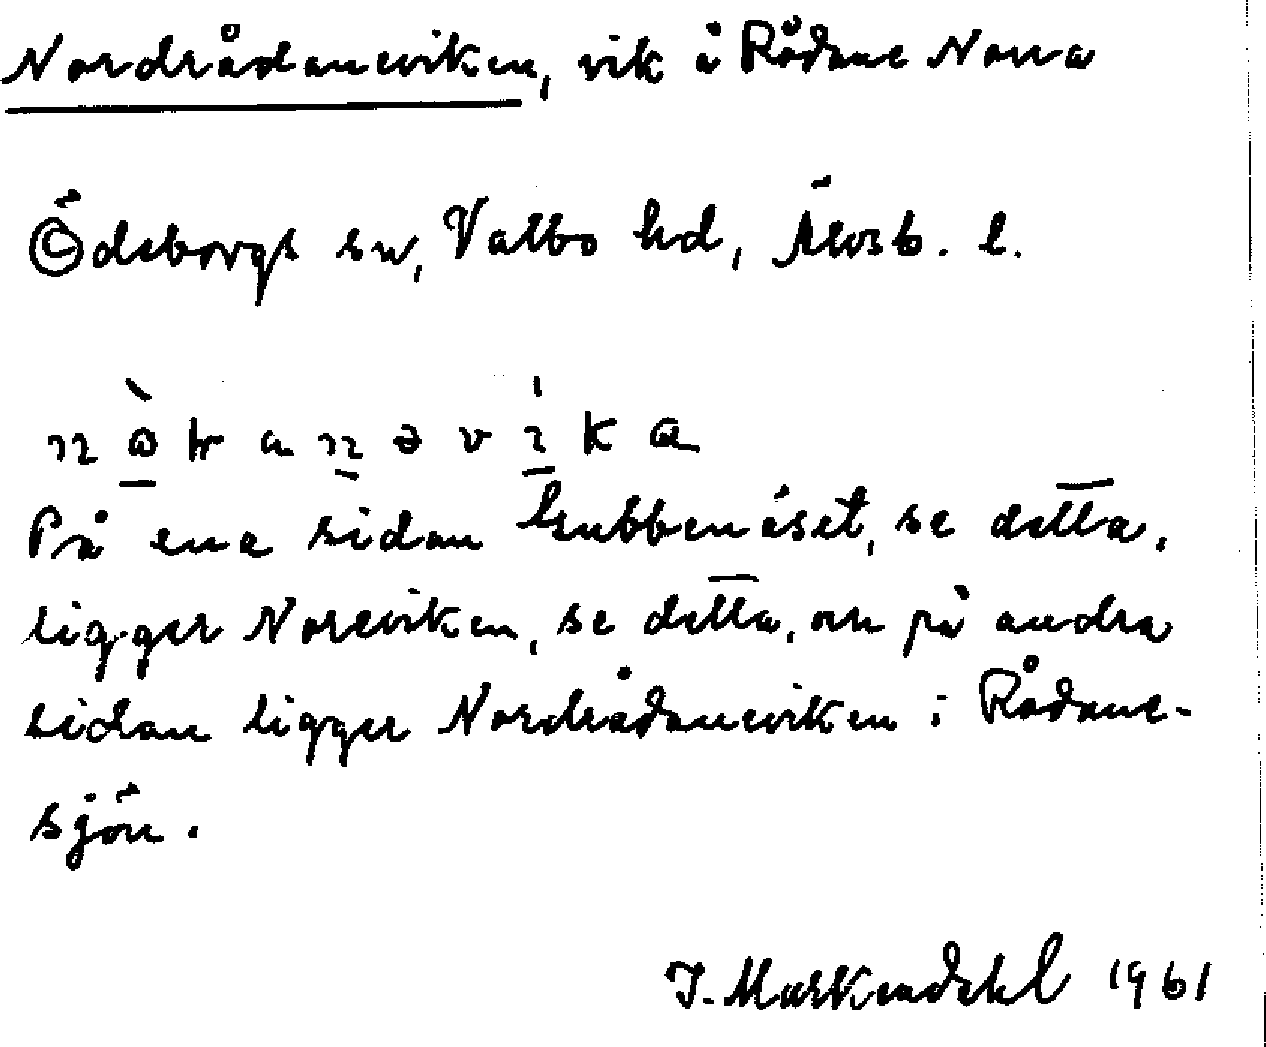 Nordrådaneviken, vik å Rådane Norra
Ödeborgs sn, Valbo hd, Älvsb. l.
På ena sidan Gubbenäset, se detta,
ligger Noreviken, se detta, om på andra
sidan ligger Nordrådaneviken i Rådane-
sjön.
J. 1961